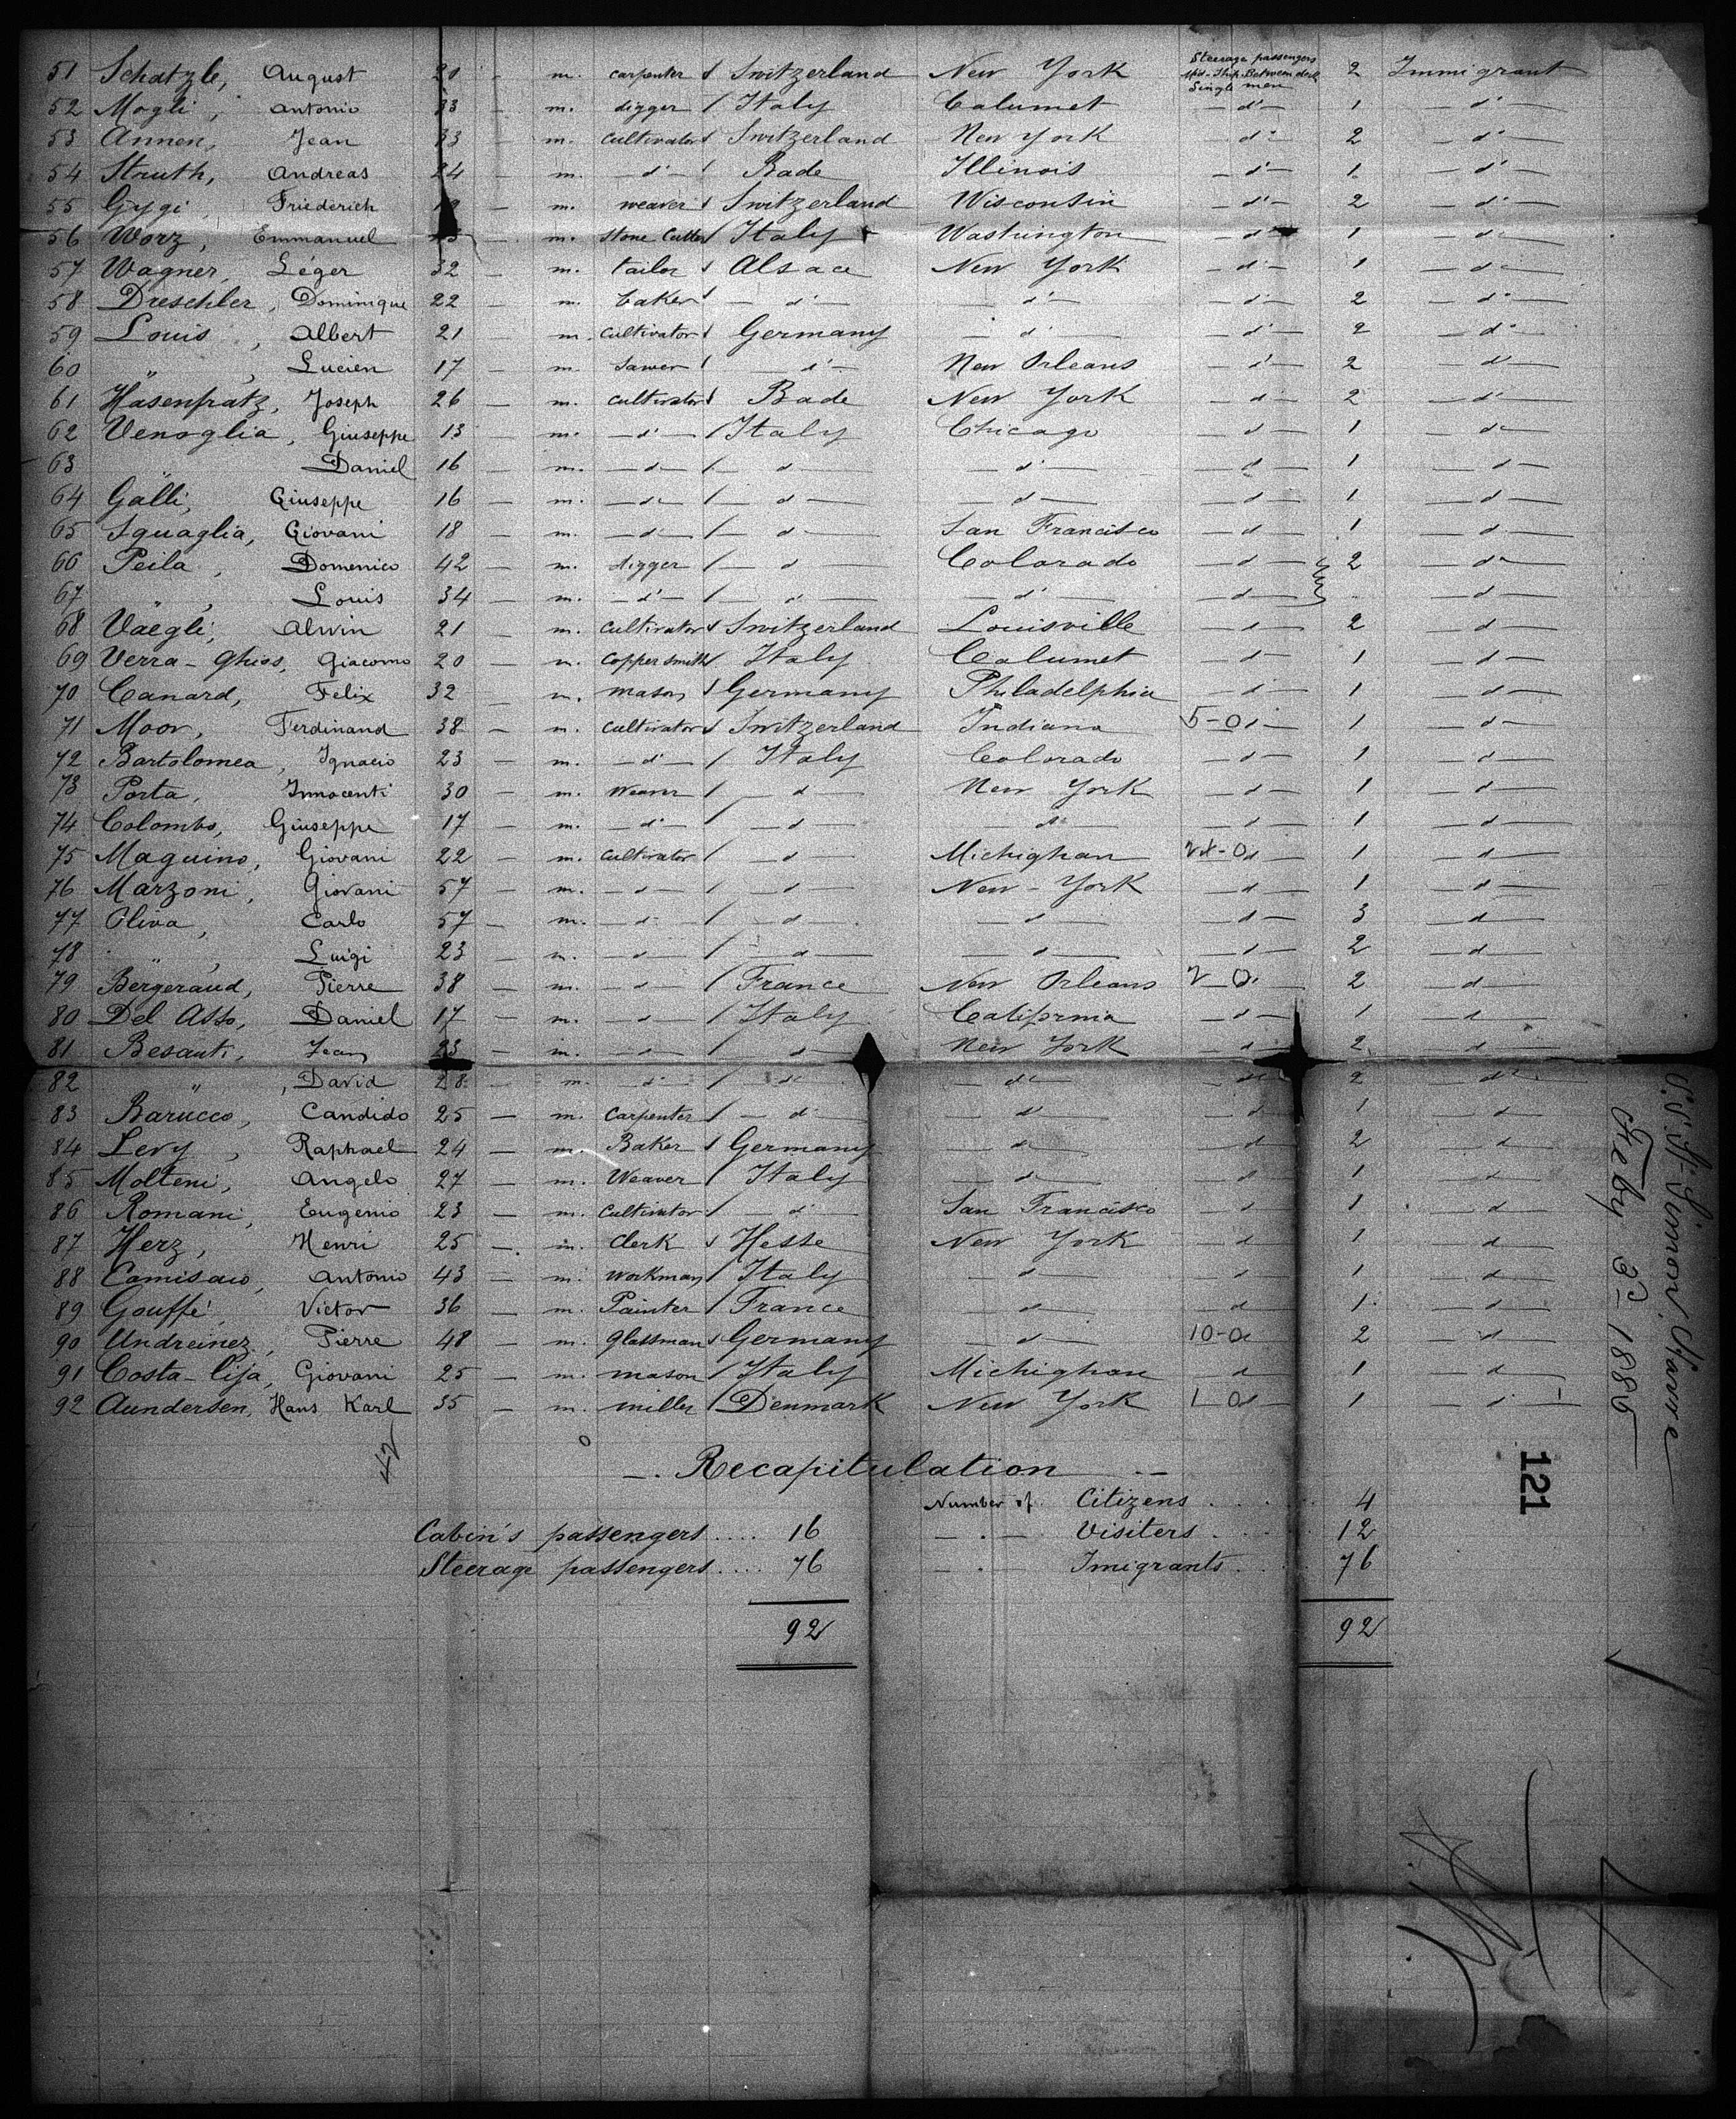 51 Schatzle, August 20 - m. carpenter Switzerland New York Steerage passengers Mid-Ship. Between deck Single men 2 Immigrant
52 Mogli, Antonio 33 - m. digger / Italy Calumet - d° - 1 - d° -
53 Annen, Jean 33 - m. cultivator Switzerland New York - d° - 2 - d° -
54 Struth, Andreas 24 - m. - d° - Bade Illinois - d° - 1 - d° -
55 Gygi, Friederich - m. weaver Switzerland Wisconsin - d° - 2 - d° -
56 Worz, Emmanuel - m. stone Cutter Italy Washington - d° - 1 - d° -
57 Wagner, Léger 32 - m. tailor Alsace New York - d° - 1 - d° -
58 Dreschler, Dominique 22 - m. baker - d° - - d° - - d° - 2 - d° -
59 Louis, Albert 21 - m. cultivator Germany - d° - - d° - 2 - d° -
60 " , Lucien 17 - m. sawer - d° - New Orleans - d° - 2 - d° -
61 Häsenfratz, Joseph 26 - m. cultivator Bade New York - d° - 2 - d° -
62 Venoglia, Giuseppe 13 - m. - d° - / Italy Chicago - d° - 1 - d° -
63 Daniel 16 - m. - d° - / - d° - - d° - - d° - 1 - d° -
64 Galli, Giuseppe 16 - m. - d° - / - d° - - d° - - d° - 1 - d° -
65 Squaglia, Giovani 18 - m. - d° - / - d° - San Francisco - d° - 1 - d° -
66 Peila, Domenico 42 - m. digger / - d° - Colorado - d° - 2 - d° -
67 " , Louis 34 - m. - d° - / - d° - - d° - - d° - - d° -
68 Vaegli, Alwin 21 - m. cultivator Switzerland Louisville - d° - 2 - d° -
69 Verra-Ghios, Giacomo 20 - m. coppersmith Italy Calumet - d° - 1 - d° -
70 Canard, Felix 32 m. mason Germany Philadelphia - d° - 1 - d° -
71 Moor, Ferdinand 38 - m. cultivator Switzerland Indiana 5-0 1 - d° -
72 Bartolomea, Ignacio 23 - m. - d° - / Italy Colorado - d° - 1 - d° -
73 Porta, Innocenti 30 - m. Weaver / - d° New York - d° - 1 - d° -
74 Colombo, Giuseppe 17 - m. - d° - / - d° - d° - - d° - 1 - d° -
75 Maguino, Giovani 22 - m. cultivator / - d° Michighan 1 - d° -
76 Marzoni, Giovani 57 - m. - d° - / - d° - New-York - d° - 1 - d° -
77 Oliva, Carlo 57 - m. - d° - / - d° - d° - - d° - 3 - d° -
78 " , Luigi 23 - m. - d° - / - d° - - d° - - d° - 2 - d° -
79 Bergeraud, Pierre 38 - m. - d° - / France New Orleans 2-0 2 - d° -
80 Del Asso, Daniel 17 - m. - d° - / Italy California - d° - 1 - d° -
81 Besanti, Jean 23 - m. - d° - / d° New York - d° - 2 - d° -
82 " , David 28 - m. - d° - / - d° - - d° - - d° - 2 - d° -
83 Barucco, Candido 25 - m. Carpenter / - d° - - d° - - d° - 1 - d° -
84 Levy, Raphael 24 - m. Baker Germany - d° - - d° - 2 - d° -
85 Molteni, Angelo 27 - m. Weaver / Italy - d° - - d° - 1 - d° -
86 Romani, Eugenio 23 - m. Cultivator / - d° - San Francisko - d° - 1 - d° -
87 Herz, Henri 25 - m. Clerk Hesse New York - d° - 1 - d° -
88 Camisaio, Antonio 43 - m. Workman / Italy - d° - - d° - 1 - d° -
89 Gouffé, Victor 36 - m. Painter / France - d° - - d° - 1 - d° -
90 Undreinez, Pierre 48 - m. glassman Germany - d° - 10-0 2 - d° -
91 Costa-lija, Giovani 25 - m. mason / Italy Michighan - d° - 1 - d° -
92 Aundersen, Hans Karl 35 - m. miller / Denmark New York 1-0 1 - d° -
42
Recapitulation
Number of Citizens .... 4
Cabin's passengers .... 16 - . - Visiters .... 12
Steerage passengers .... 76 - . - Imigrants .... 76
92 92
Havre
Feby 3d 1885
121